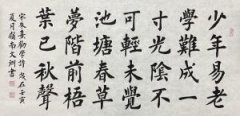 少年易老
學難成一
寸光陰不
可輕未覺
池塘春草
夢階前梧
葉已秋聲
宋朱熹勸學詩 歲在壬寅
夏月嶺南文洲書